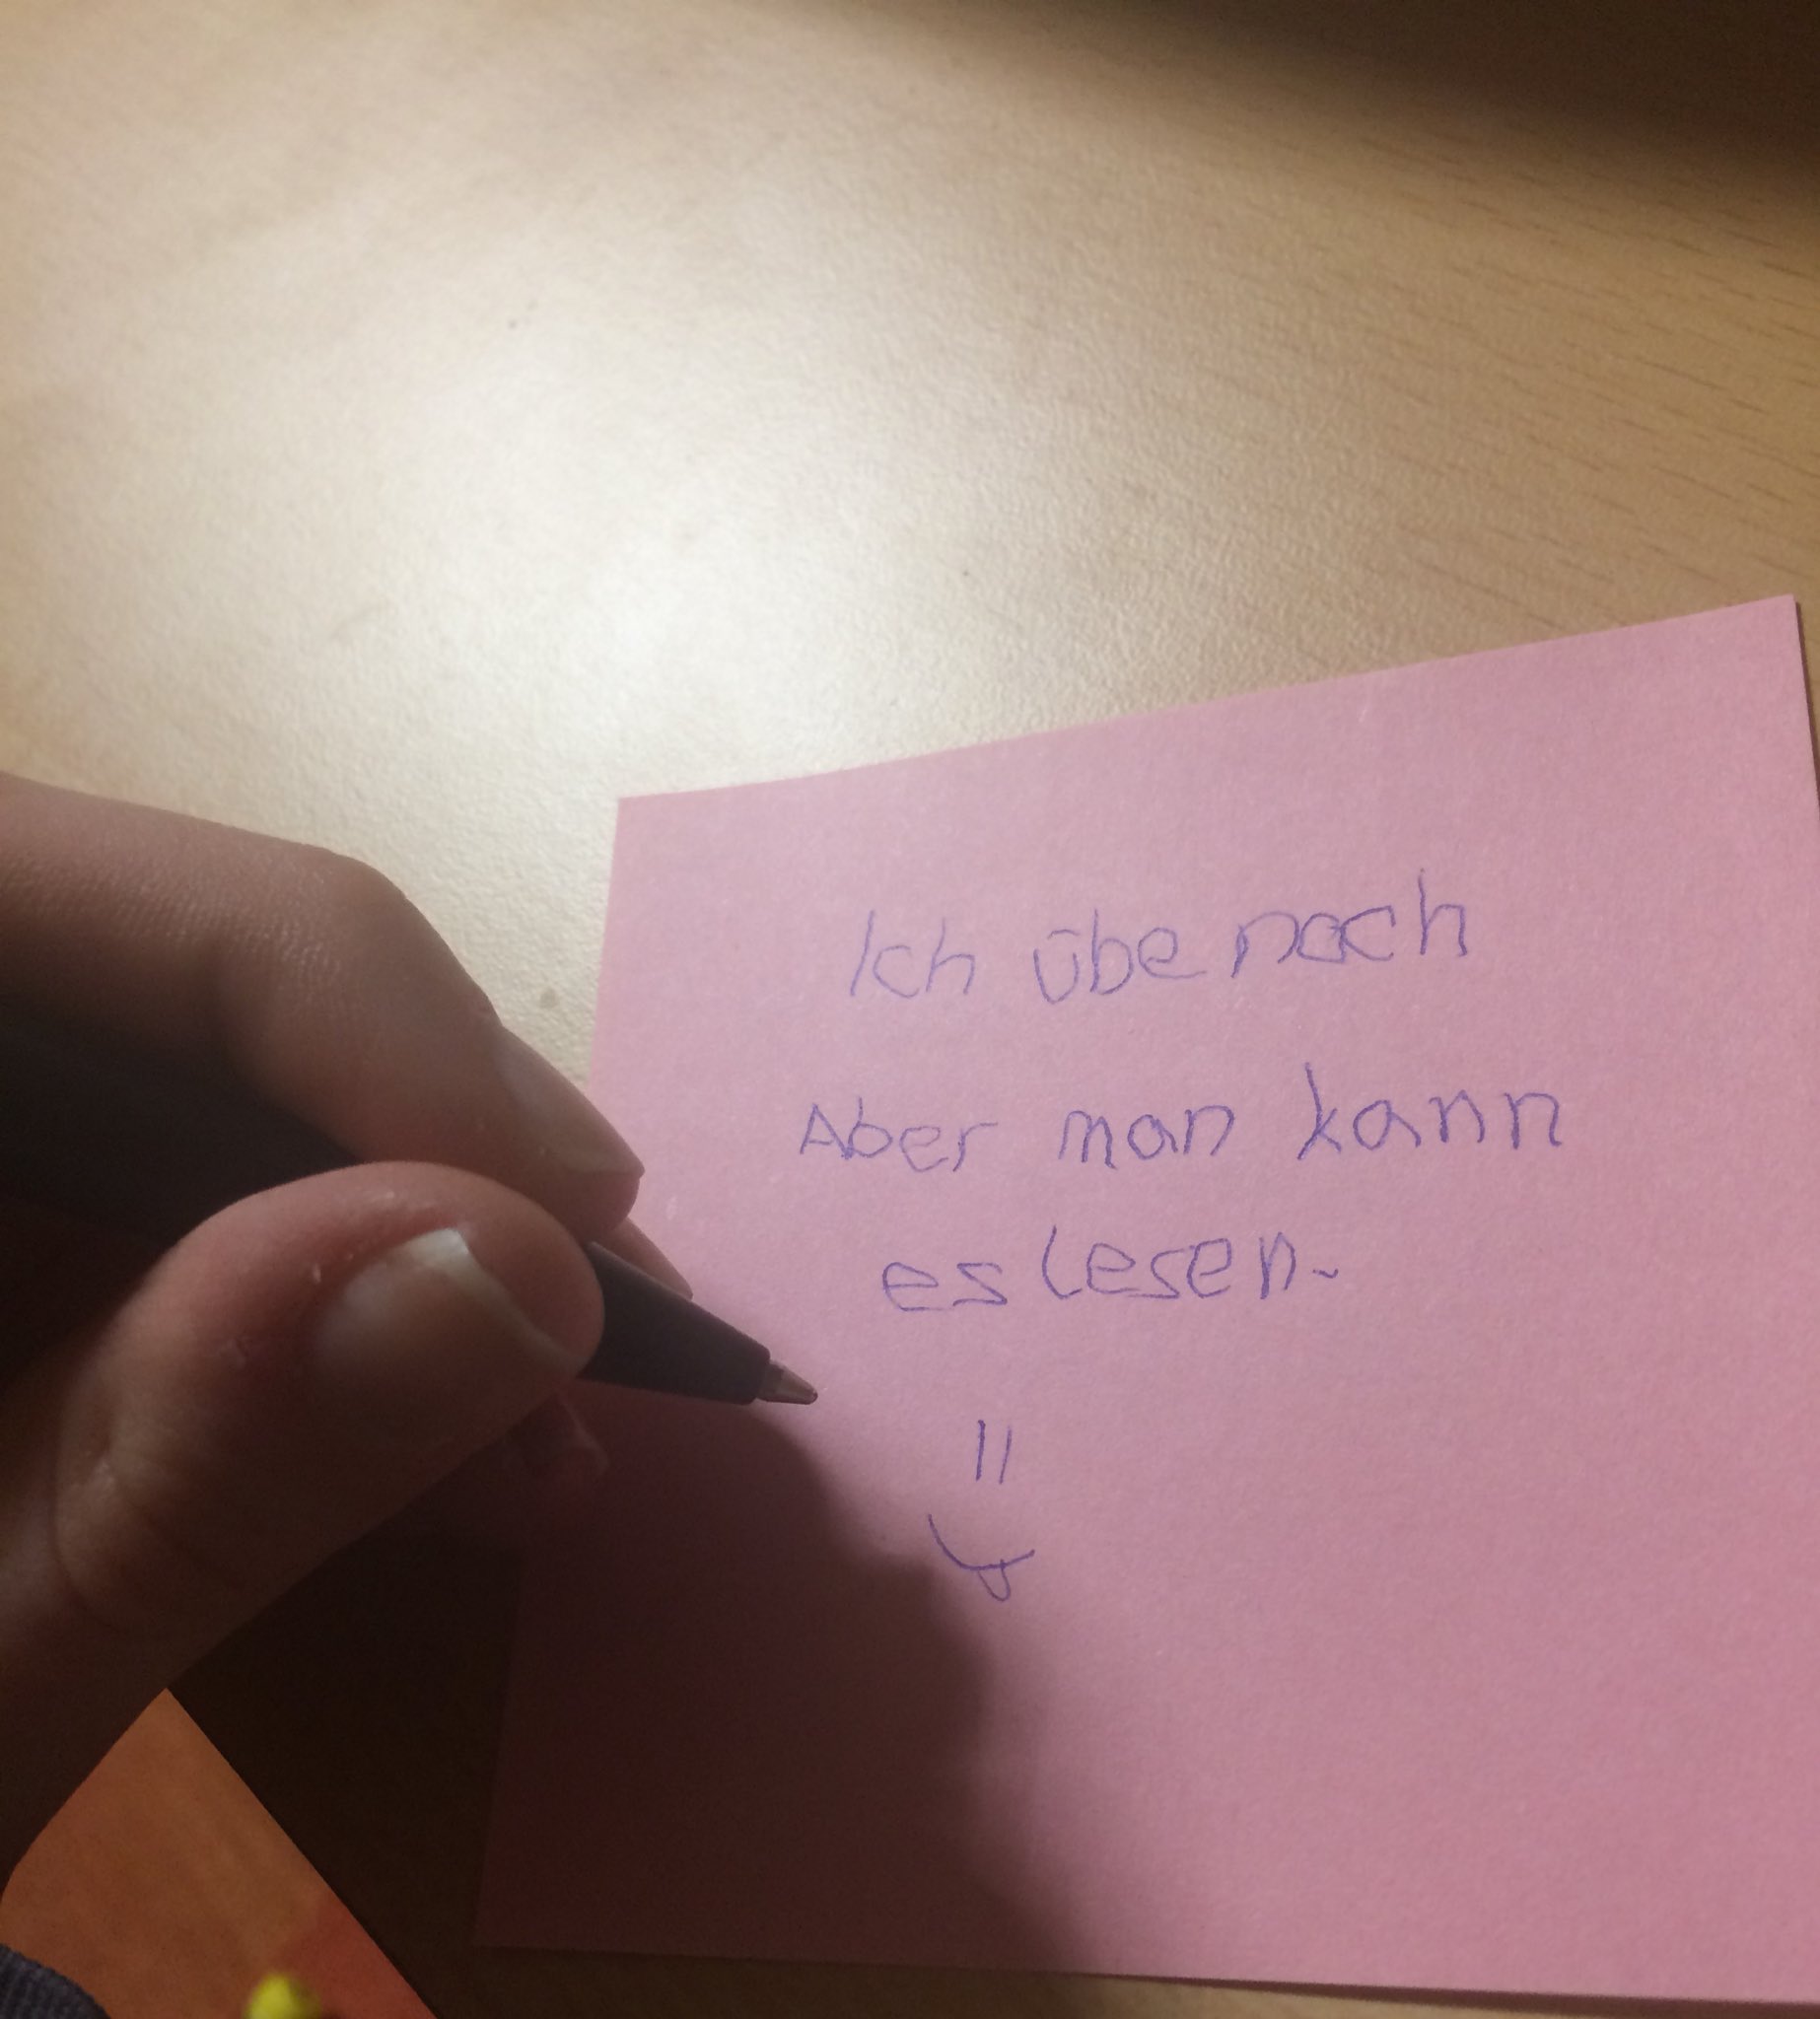 Ich übe noch
Aber man kann
es lesen.